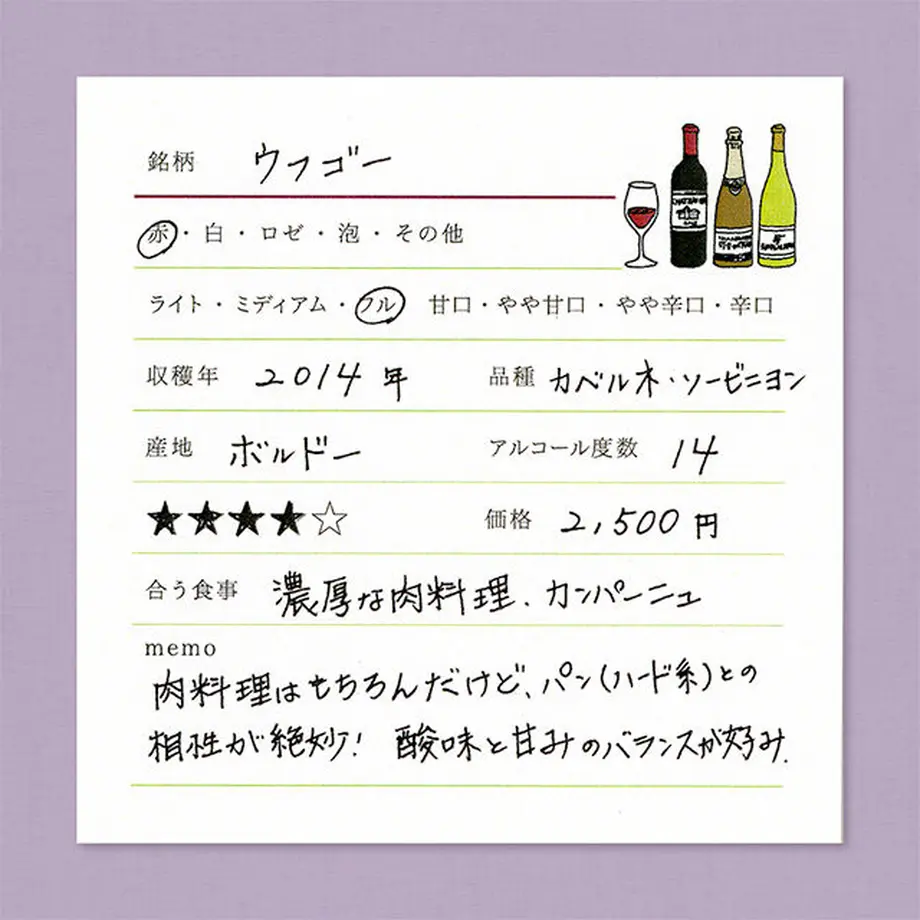 銘柄 ウフゴー
赤・白・ロゼ・泡・その他
ライト・ミディアム・フル 甘口・やや甘口・やや辛口・辛口
収穫年 2014年 品種 カベルネ・ソービニヨン
産地 ボルドー アルコール度数 14
★★★★☆ 価格 2,500円
合う食事 濃厚な肉料理、カンパーニュ
memo
肉料理はもちろんだけど、パン(ハード系)との
相性が絶妙! 酸味と甘みのバランスが好み.